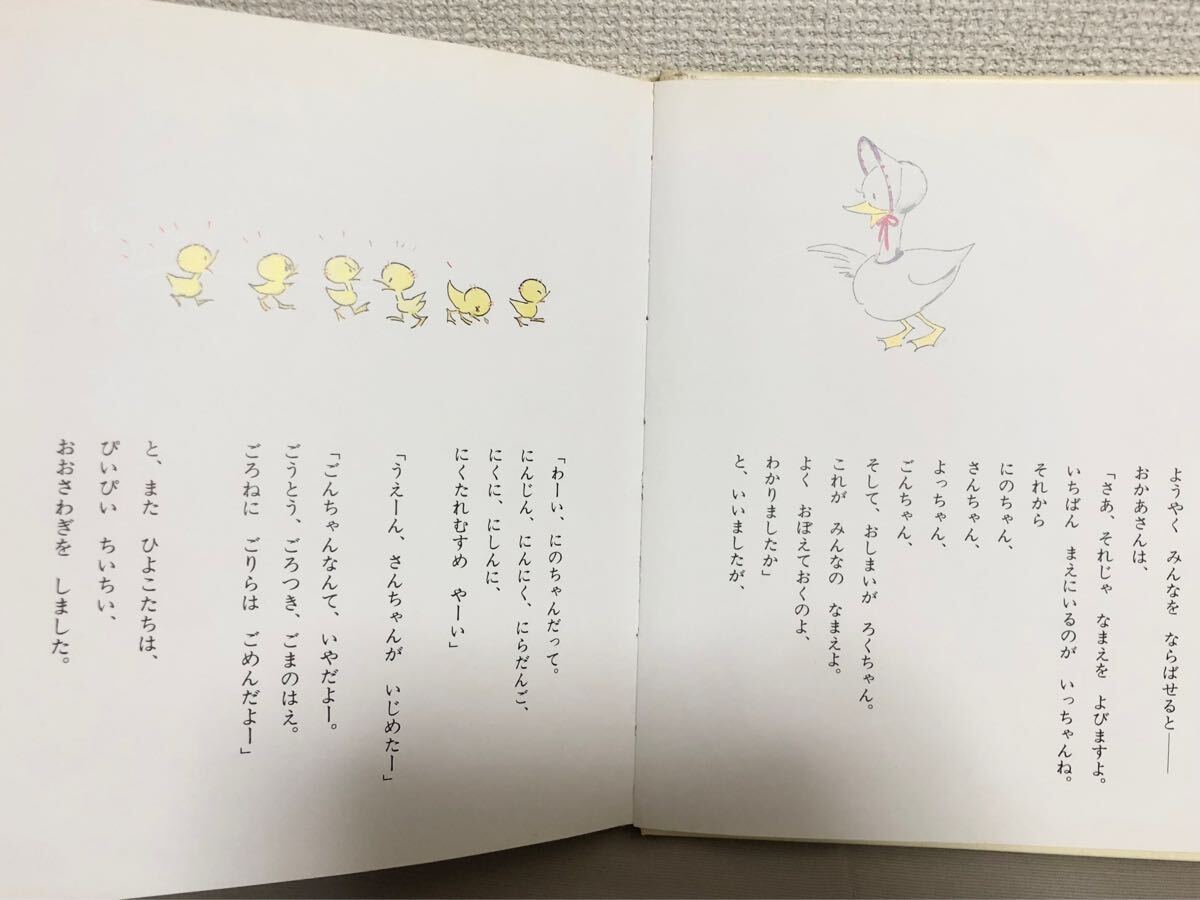 ようやく　みんなを　ならばせると――
おかあさんは、
「さあ、それじゃ　なまえを　よびますよ。
いちばん　まえにいるのが　いっちゃんね。
それから
にのちゃん、
さんちゃん、
よっちゃん、
ごんちゃん、
そして、おしまいが　ろくちゃん。
これが　みんなの　なまえよ。
よく　おぼえておくのよ、
わかりましたか」
と、いいましたが、
「わーい、にのちゃんだって。
にんじん、にんにく、にらだんご、
にくに、にしんに、
にくたれむすめ　やーい」
「うえーん、さんちゃんが　いじめたー」
「ごんちゃんなんて、いやだよー。
ごうとう、ごろつき、ごまのはえ。
ごろねに　ごりらは　ごめんだよー」
と、また　ひよこたちは、
ぴいぴい　ちいちい、
おおさわぎを　しました。